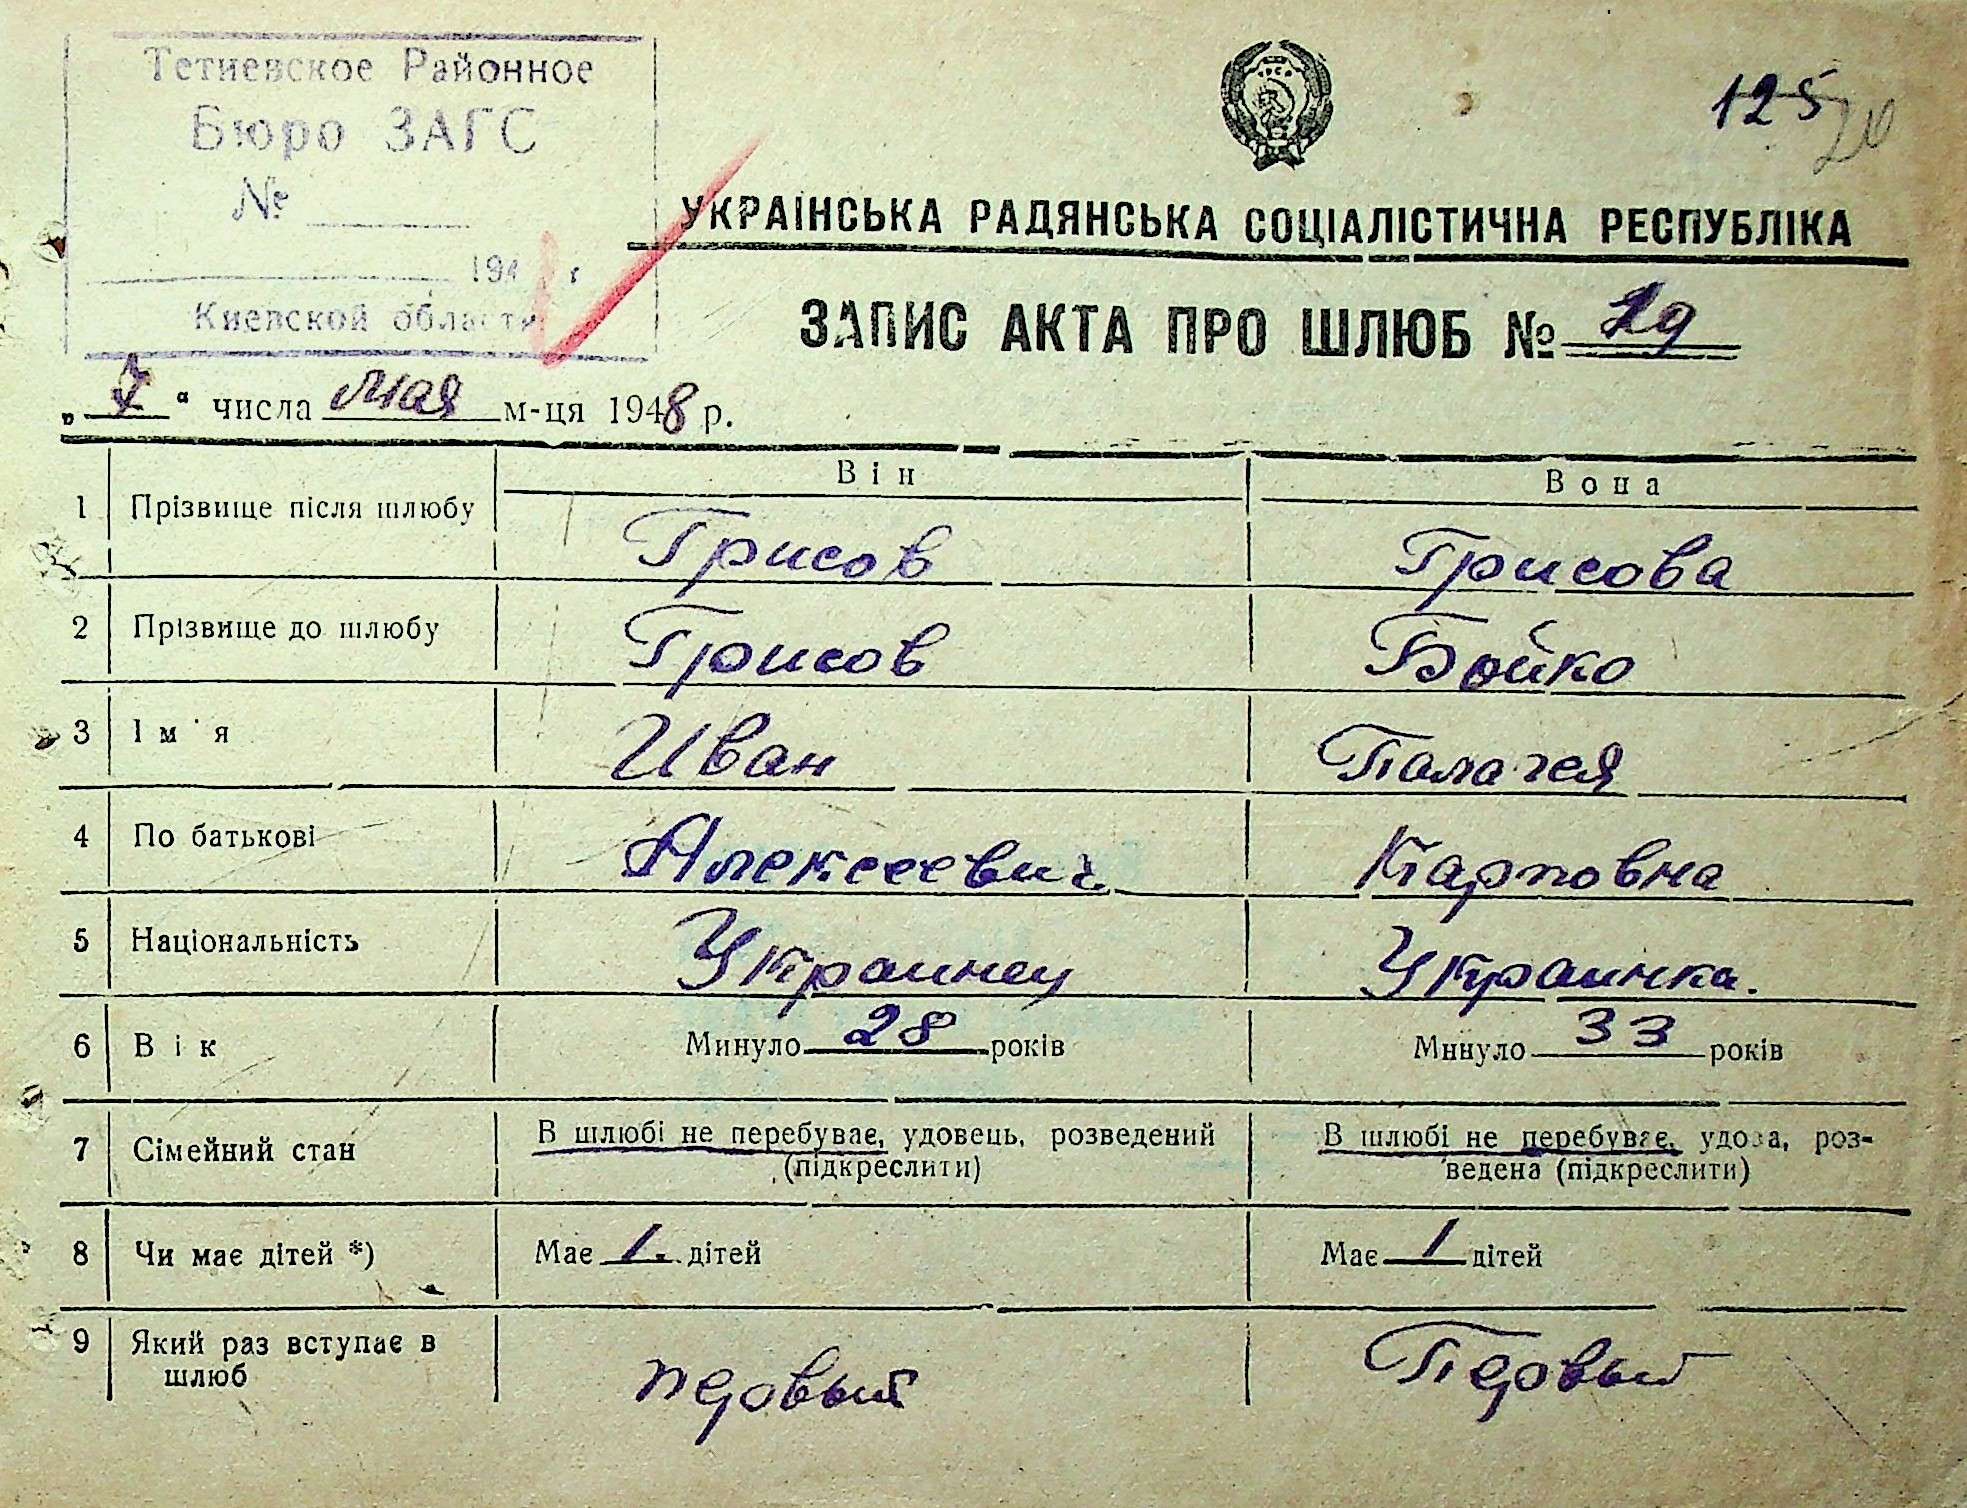 Тетиевское Районное
Бюро ЗАГС
№
194 г
Киевской области
125
20
УКРАЇНСЬКА РАДЯНСЬКА СОЦІАЛІСТИЧНА РЕСПУБЛІКА
ЗАПИС АКТА ПРО ШЛЮБ №
„ 7 " числа Мая м-ця 1948 р.
Він Вона
1 Прізвище після шлюбу Грисов Грисова
2 Прізвище до шлюбу Грисов Бойко
3 Ім'я Иван Палагея
4 По батькові Алексеевич Карповна
5 Національність Украинец Украинка.
6 Вік Минуло 28 років Минуло 33 років
7 Сімейний стан В шлюбі не перебуває, удовець, розведений В шлюбі не перебуває, удова, роз-
(підкреслити) ведена (підкреслити)
8 Чи має дітей *) Має 1. дітей Має 1 дітей
9 Який раз вступає в
шлюб первый Первый